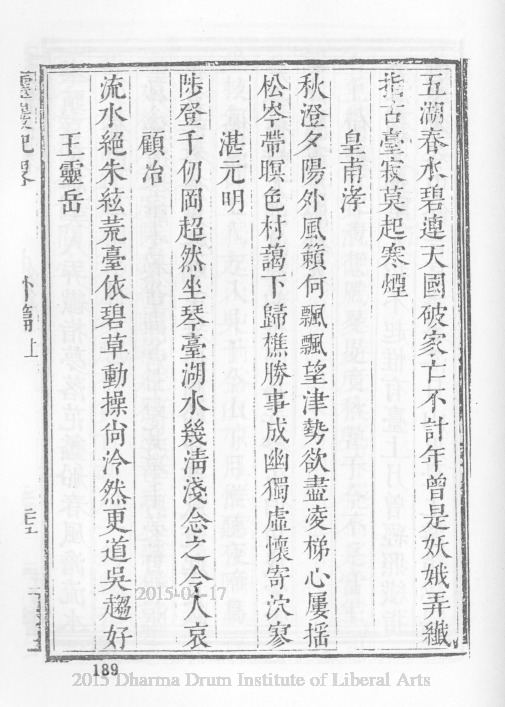 五湖春水碧連天國破家亡不計年曾是妖娥弄纖
指古臺寂莫起寒煙
皇甫涍
秋澄夕陽外風籟何飄飄望津勢欲盡凌梯心屢揺
松岑帶暝色村藹下歸樵勝事成幽獨虛懷寄泬寥
湛元明
陟登千仞岡超然坐琴臺湖水幾清淺念之令人哀
顧冶
流水絕朱絃荒臺依碧草動操尙泠然更道吳趨好
王靈岳
靈巖記畧
外篇上
189
2015-04-17
2015 Dharma Drum Institute of Liberal Arts